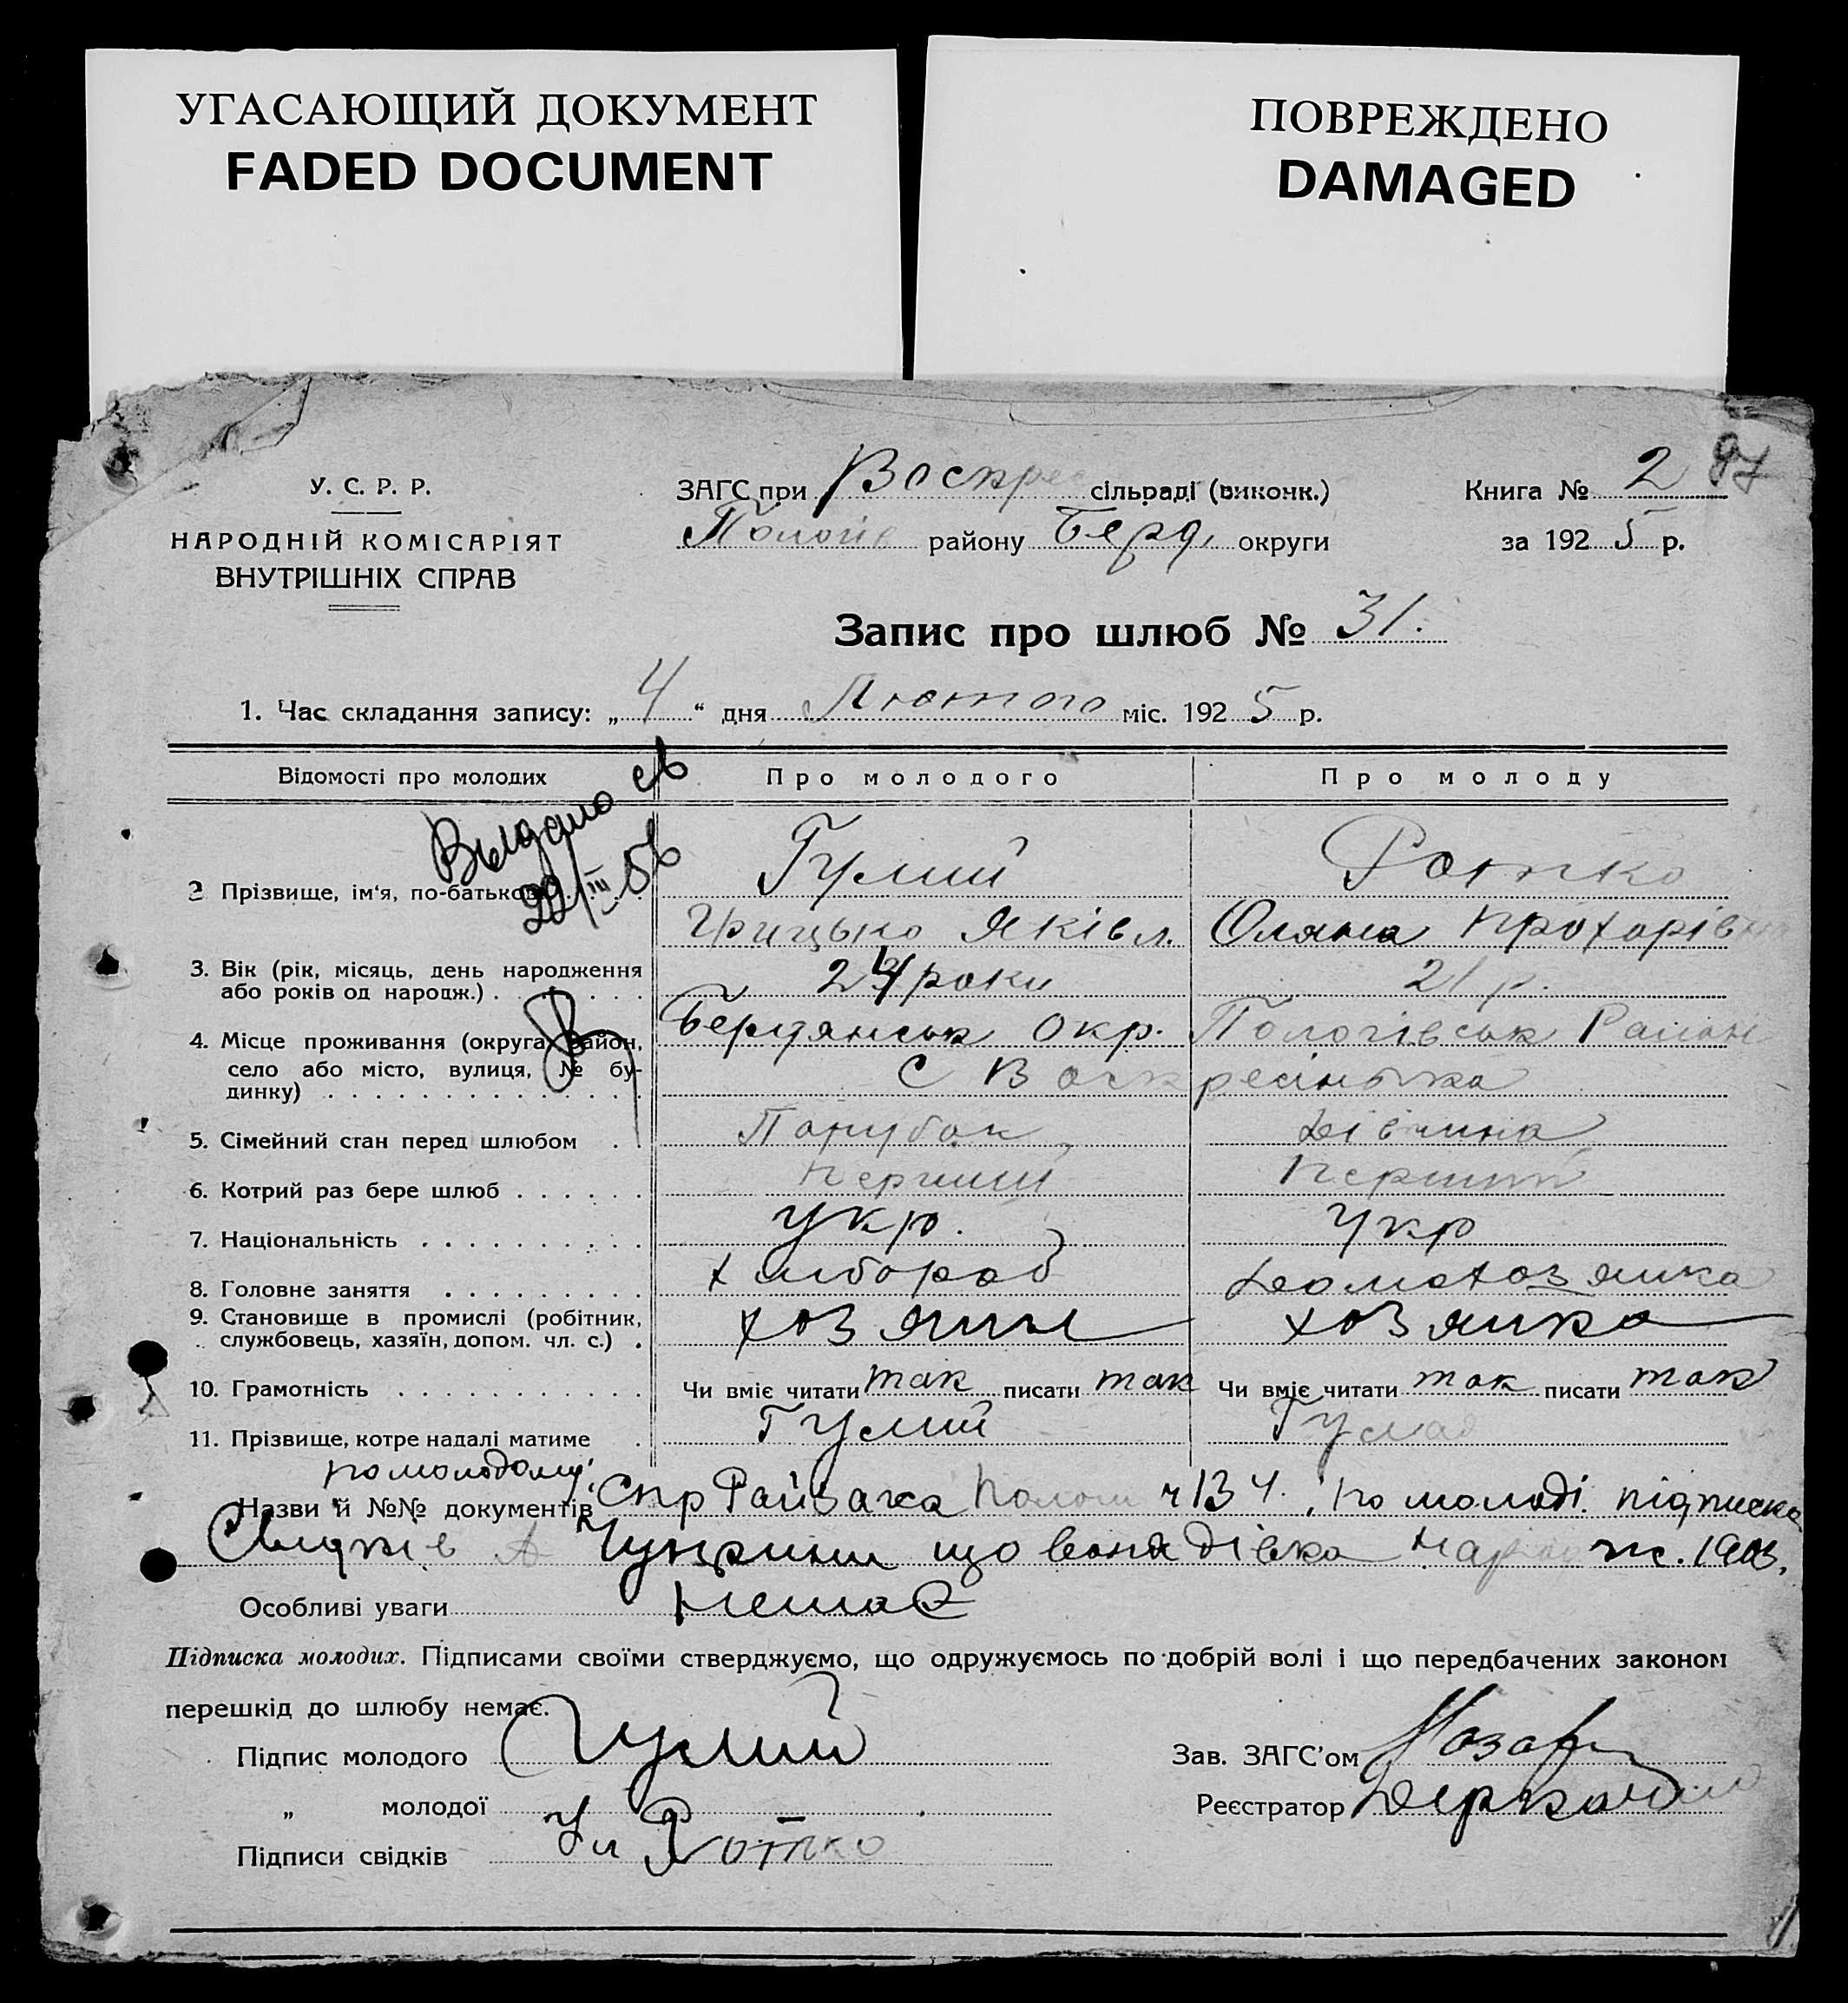 УГАСАЮЩИЙ ДОКУМЕНТ
FADED DOCUMENT
ПОВРЕЖДЕНО
DAMAGED
У. С. Р. Р.
НАРОДНІЙ КОМІСАРІЯТ
ВНУТРІШНІХ СПРАВ
ЗАГС при Воскрес сільраді (виконк.)
Пологів району Берд. округи
Книга № 2 97
за 1925 р.
Запис про шлюб № 31.
1. Час складання запису: „4“ дня Лютого міс. 1925 р.
Відомості про молодих Про молодого Про молоду
Выдано св
29/III 56
2 Прізвище, ім‘я, по-батькові Гулий Ротко
Грицько Яківл. Оляна Прохорівна
3. Вік (рік, місяць, день народження
або років од народж.) 24 роки 21 р.
4. Місце проживання (округа, район, Бердянськ Окр. Пологівськ Район
село або місто, вулиця, № бу-
динку) С Воскресінька
5. Сімейний стан перед шлюбом Парубок Дівчина
6. Котрий раз бере шлюб Перший Перший
7. Національність укр. Укр
8. Головне заняття хлібороб домохозяйка
9. Становище в промислі (робітник,
службовець, хазяїн, допом. чл. с.) хозяин хозяйка
10. Грамотність Чи вміє читати так писати так Чи вміє читати так писати так
11. Прізвище, котре надалі матиме Гулий Гулая
по молодому:
Назви й №№ документів Спр Райзагса Полог ч 134. ; по молоді підписка
Свидків А що вона дівка народж. 1903.
Особливі уваги немає
Підписка молодих. Підписами своїми стверджуємо, що одружуємось по добрій волі і що передбачених законом
перешкід до шлюбу немає.
Підпис молодого Гулий
„ молодої
Підписи свідків Ул Ротко
Зав. ЗАГС’ом
Реєстратор